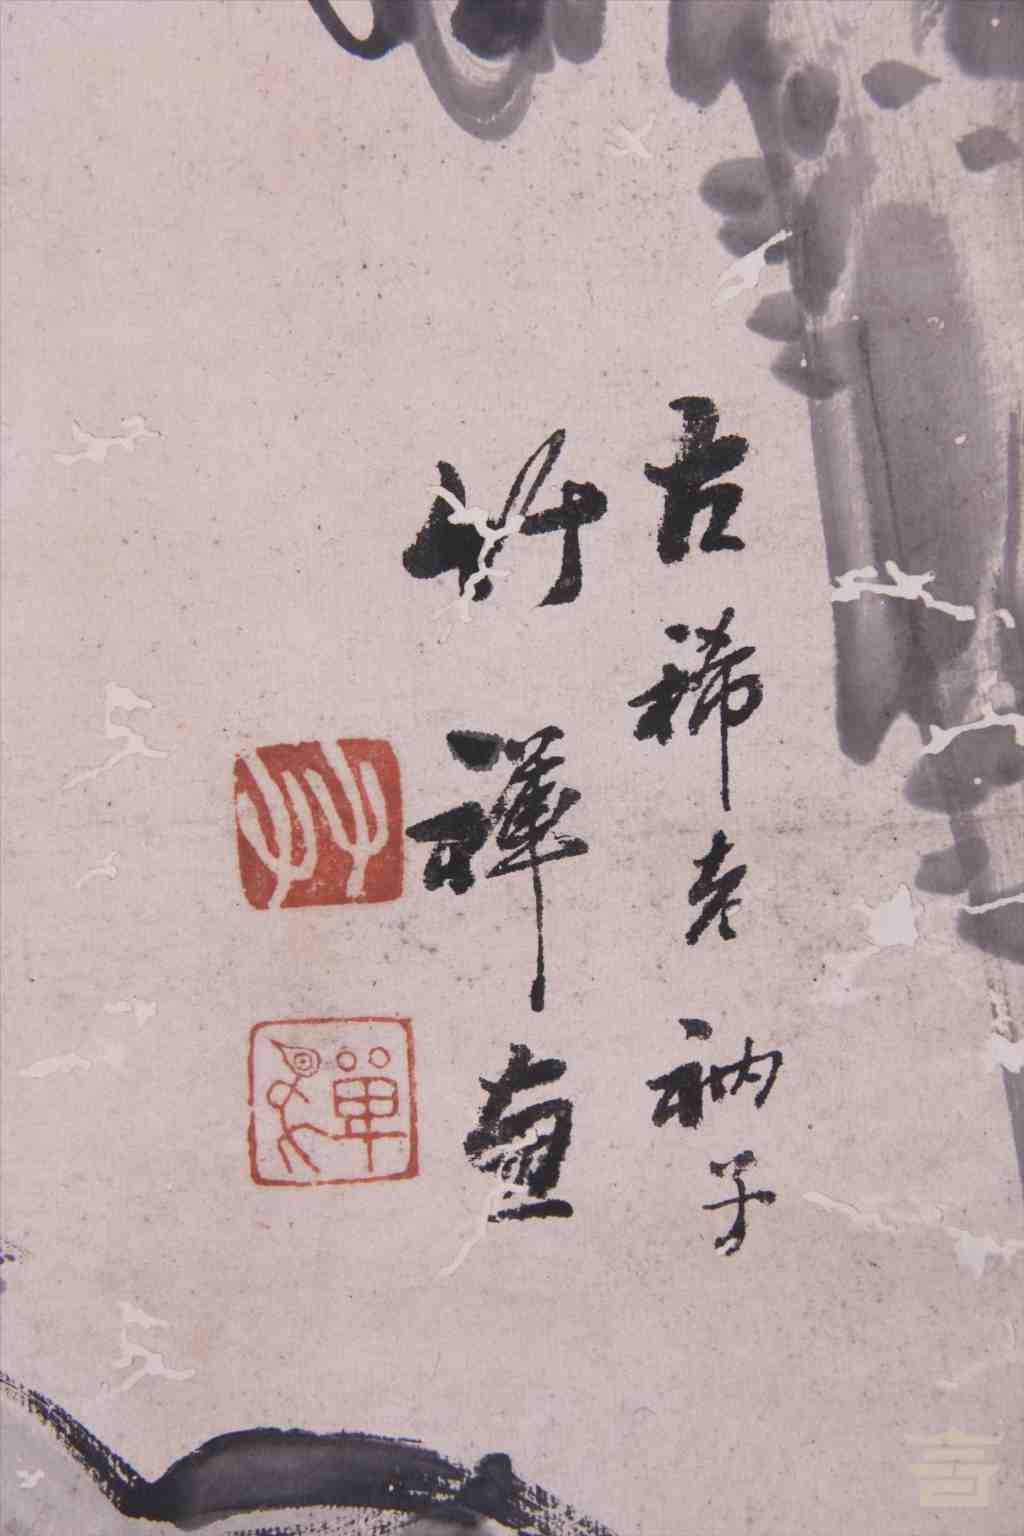 古稀老衲子
竹禪畫
竹
禪